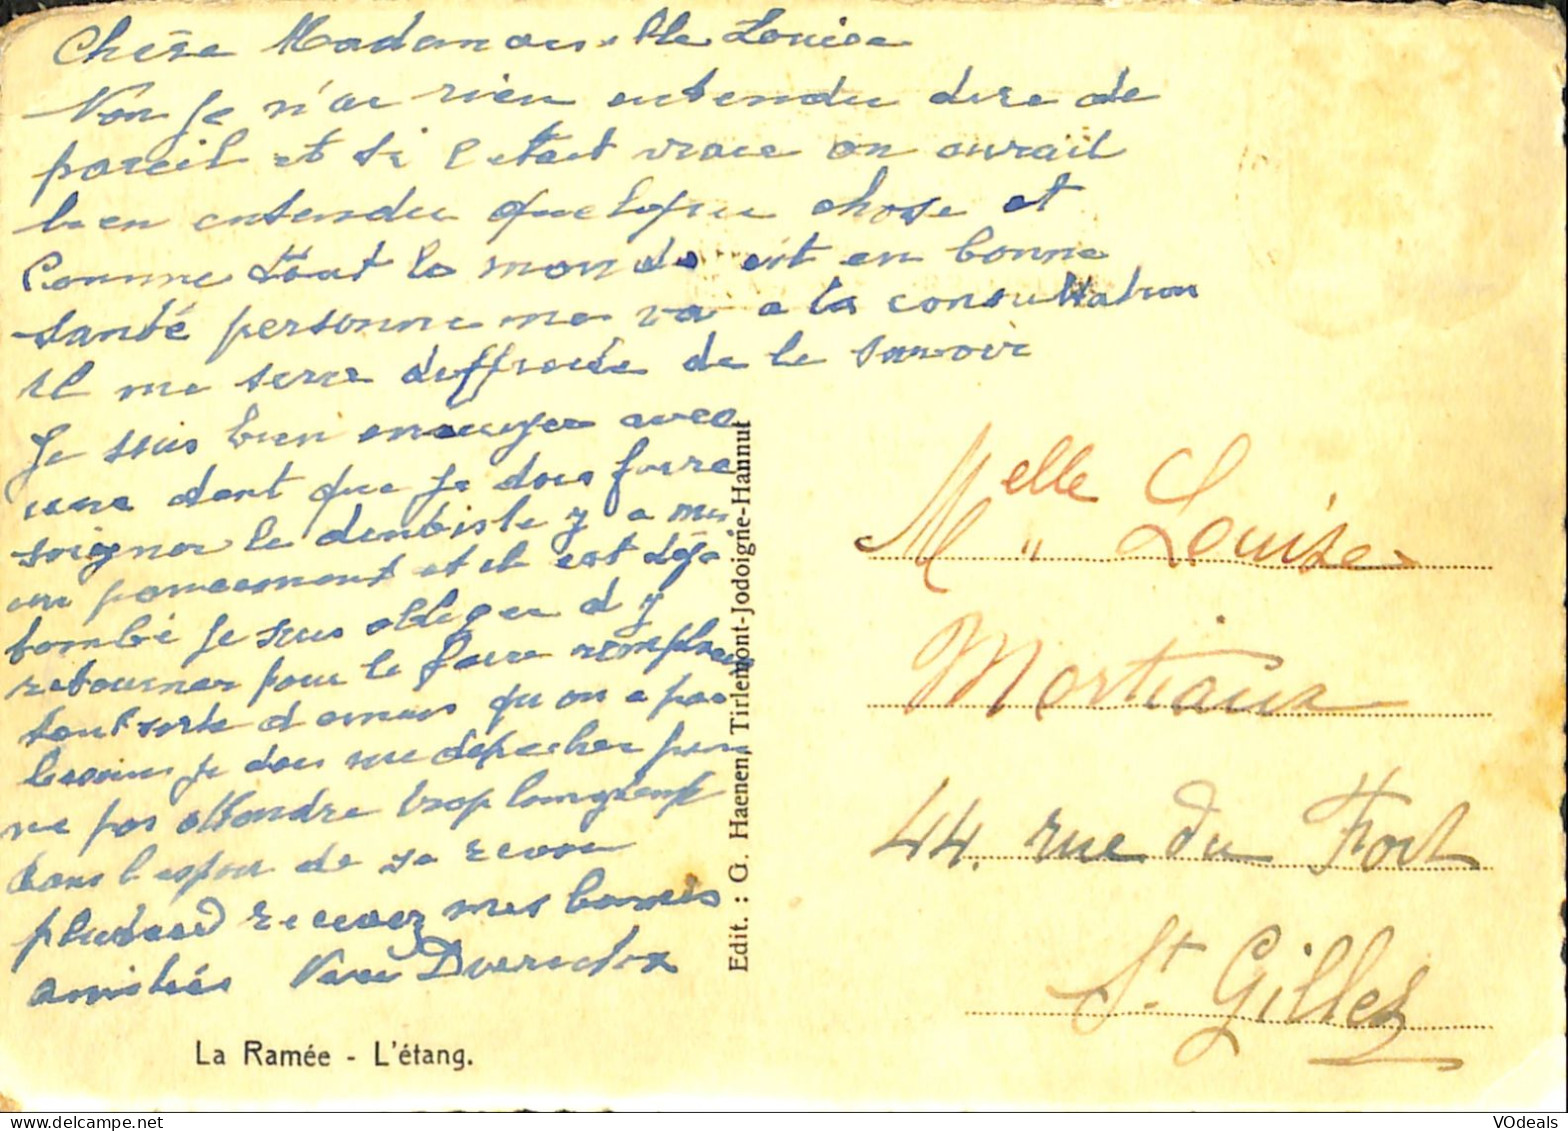 Chère Mademoiselle Louise
Non je n'ai rien entendu dire de
pareil et si l etait vraie on aurait
bien entendu quelque chose et
Comme tout le monde est en bonne
santé personne ne va a la consultation
il me sera difficile de le savoir
Je suis bien ennuyer avec
une dent que je dois faire
soigner le dentiste y a mis
un pansement et il est déja
tombé je suis obliger d y
retourner pour le faire remplacer
tout sorte d ennuis qu on a pas
besoins je dois me depecher pour
ne pas attendre trop longtemps
Dans l espoir de se revoir
plustard recevez mes bonnes
amitiés Veve
La Ramée - L'étang.
Edit. : G. Haenen, Tirlemont-Jodoigne-Hannut
Melle Louise
Mortiaux
44, rue du Fort
St. Gilles
VOdeals